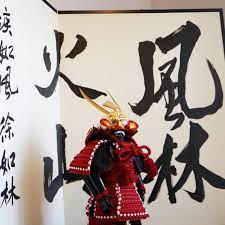 風林
火山
疾如風 徐如林